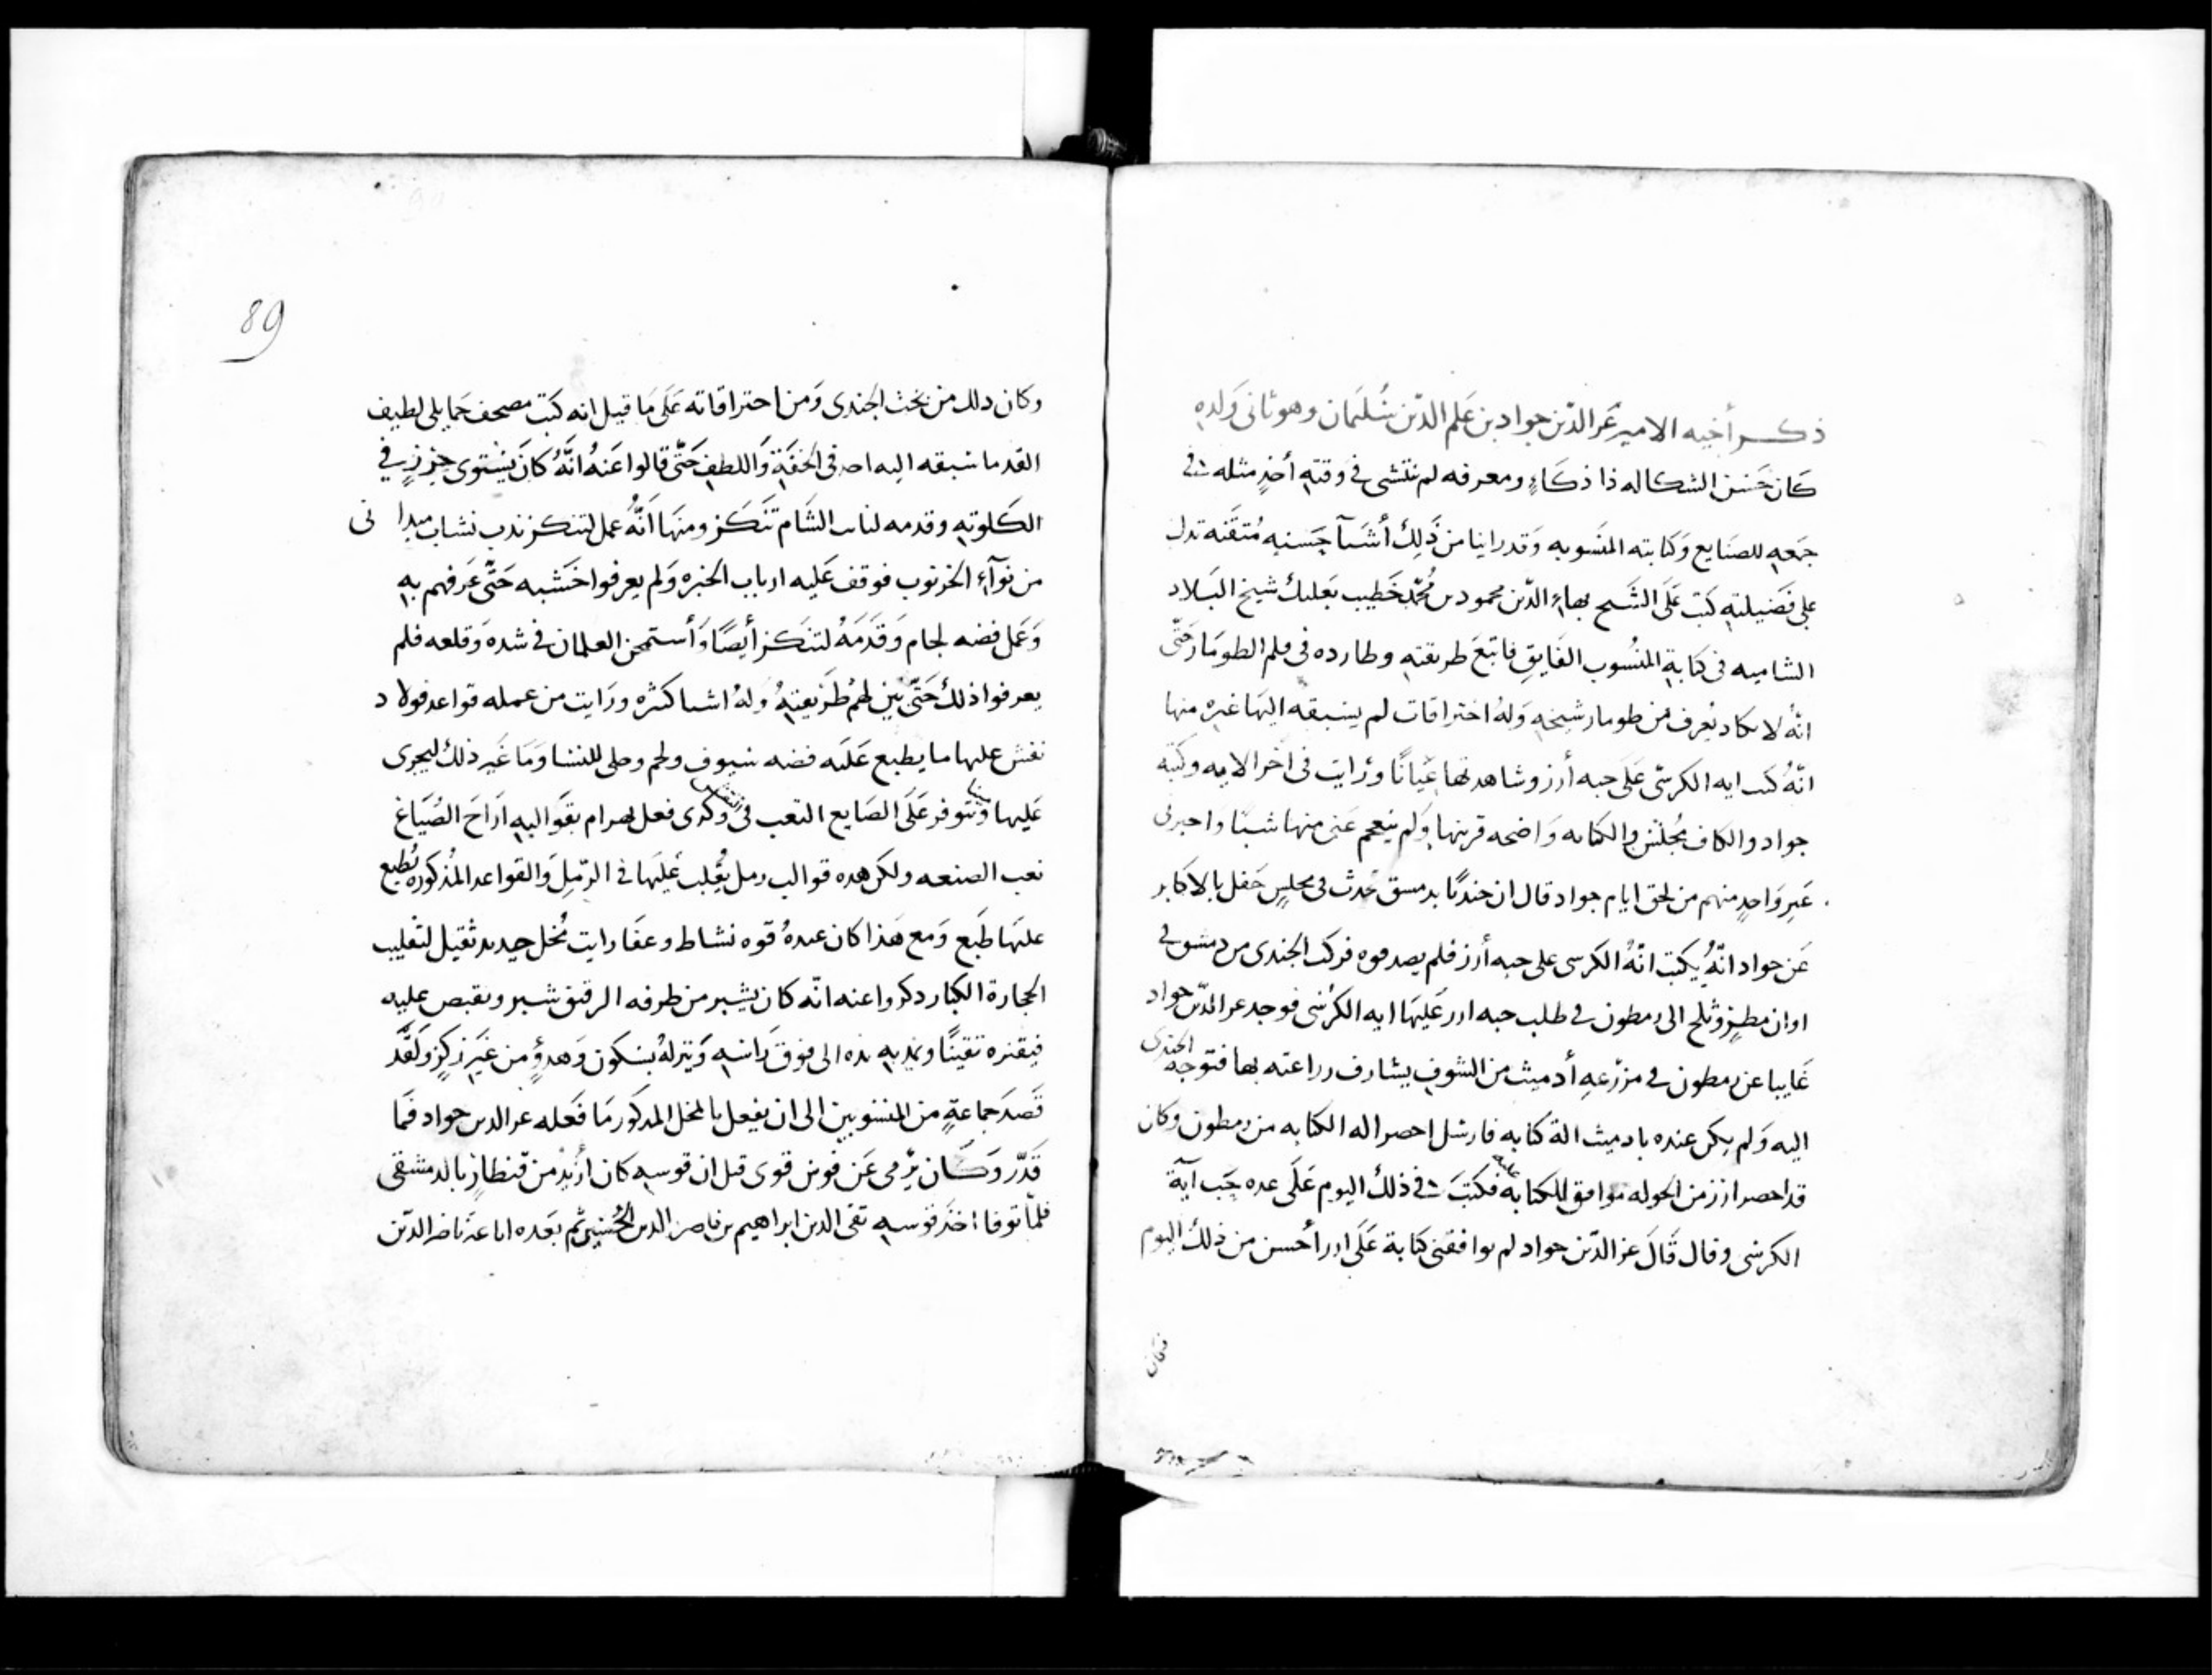 ذكر أخيه الامير عز الدين جواد بن علم الدين سليمان وهو ثاني ولده
كان حسن الشكاله ذا ذكاء ومعرفه لم ينتشى في وقته أخذ مثله في
جمعه للصنايع وكتابته المنسوبه وقد راينا من ذلك أشيآ حسنه متقنه تدل
على فضيلته كتب على الشيح بهاء الدين محمود بن محمد خطيب بعلبك شيخ البلاد
الشاميه في كتابة المنسوب الفايق فاتبع طريقته وطارده في قلم الطومار حتى
انه لا يكاد يعرف من طومار شيخه وله اختراقات لم يسبقه اليها غيره منها
انه كتب ايه الكرسي على حبه أرز وشاهدتها عيانا ورايت في اخر الايه وكتبه
جواد والكاف مجلس والكتابه واضحه قريتها ولم ينعجم عني منها شيئا واخبرني
غير واحد منهم من لحق ايام جواد قال ان جنديا بدمسق حدث في مجلس حفل بالاكابر
عن جواد انه يكتب اية الكرسي على حبه أرز فلم يصدقوه فركب الجندي من دمشق في
اوان مطير وثلج الى رمطون في طلب حبه ارز عليها ايه الكرسي فوجد عز الدين جواد
غايبا عن رمطون في مزرعه أدميث من الشوف يشارف زراعته بها فتوجه الجندى
اليه ولم يكن عنده بادميث الة كتابه فارسل احضر اله الكتابه من رمطون وكان
قد احضر ارز من الحوله موافق للكتابه فكتب في ذلك اليوم على عده حب آية
الكرسى وقال قال عز الدين جواد لم يوافقنى كتابة على ارز أحسن من ذلك اليوم
وكان
89
وكان دلك من بخث الجندى ومن احتراقاته على ما قيل انه كتب مصحف حمايلي لطيف
القد ما سبقه اليه احد في الخفة واللطف حتى قالوا عنه انه كان يستوى في
الكلوته وقدمه لنايب الشام تنكز ومنها أنه عمل لتنكز ندب نشاب ميدا نى
من نوآء الخرنوب فوقف عليه ارباب الخبره ولم يعرفوا خشبه حتى عرفهم به
وعمل فضه لجام وقدمه لتنكز أيضا وأستمحن الغلمان في شده وقلعه فلم
يعرفوا ذلك حتى بين لهم طريقته وله اشيا كثره ورايت من عمله قواعد فولاد
نقش عليها ما يطبع عليه فضه سيوف ولجم وحلى للنسا وما غير ذلك ليجرى
عليها ويتوفر على الصايع التعب في وكدى فعل بهرام بقواليه اراح الصياغ
تعب الصنعه ولكن هده قوالب رمل يقلب عليها في الرمل والقواعد المذكوره تطبع
عليها طبع ومع هذا كان عنده قوه نشاط وعفا رايت مخل حديد ثقيل لتقليب
الحجارة الكبار دكروا عنه انه كان يشبر من طرفه الرقيق شبر ويقبص عليه
ويمد به يده الى فوق راسه وينزله بسكون وهدؤ من غير زكز ولقد
قصد جماعة من المنسوبين الى ان يفعل بالمخل المدكور ما فعله عز الدين جواد فما
قدر وكان يرمى عن قوس قوى قيل ان قوسه كان أزيد من قنطار بالدمشقى
فلما توفا اخذ قوسه تقى الدين ابراهيم بن ناصر الدين الحسين ثم بعده اباعه ناصر الدين